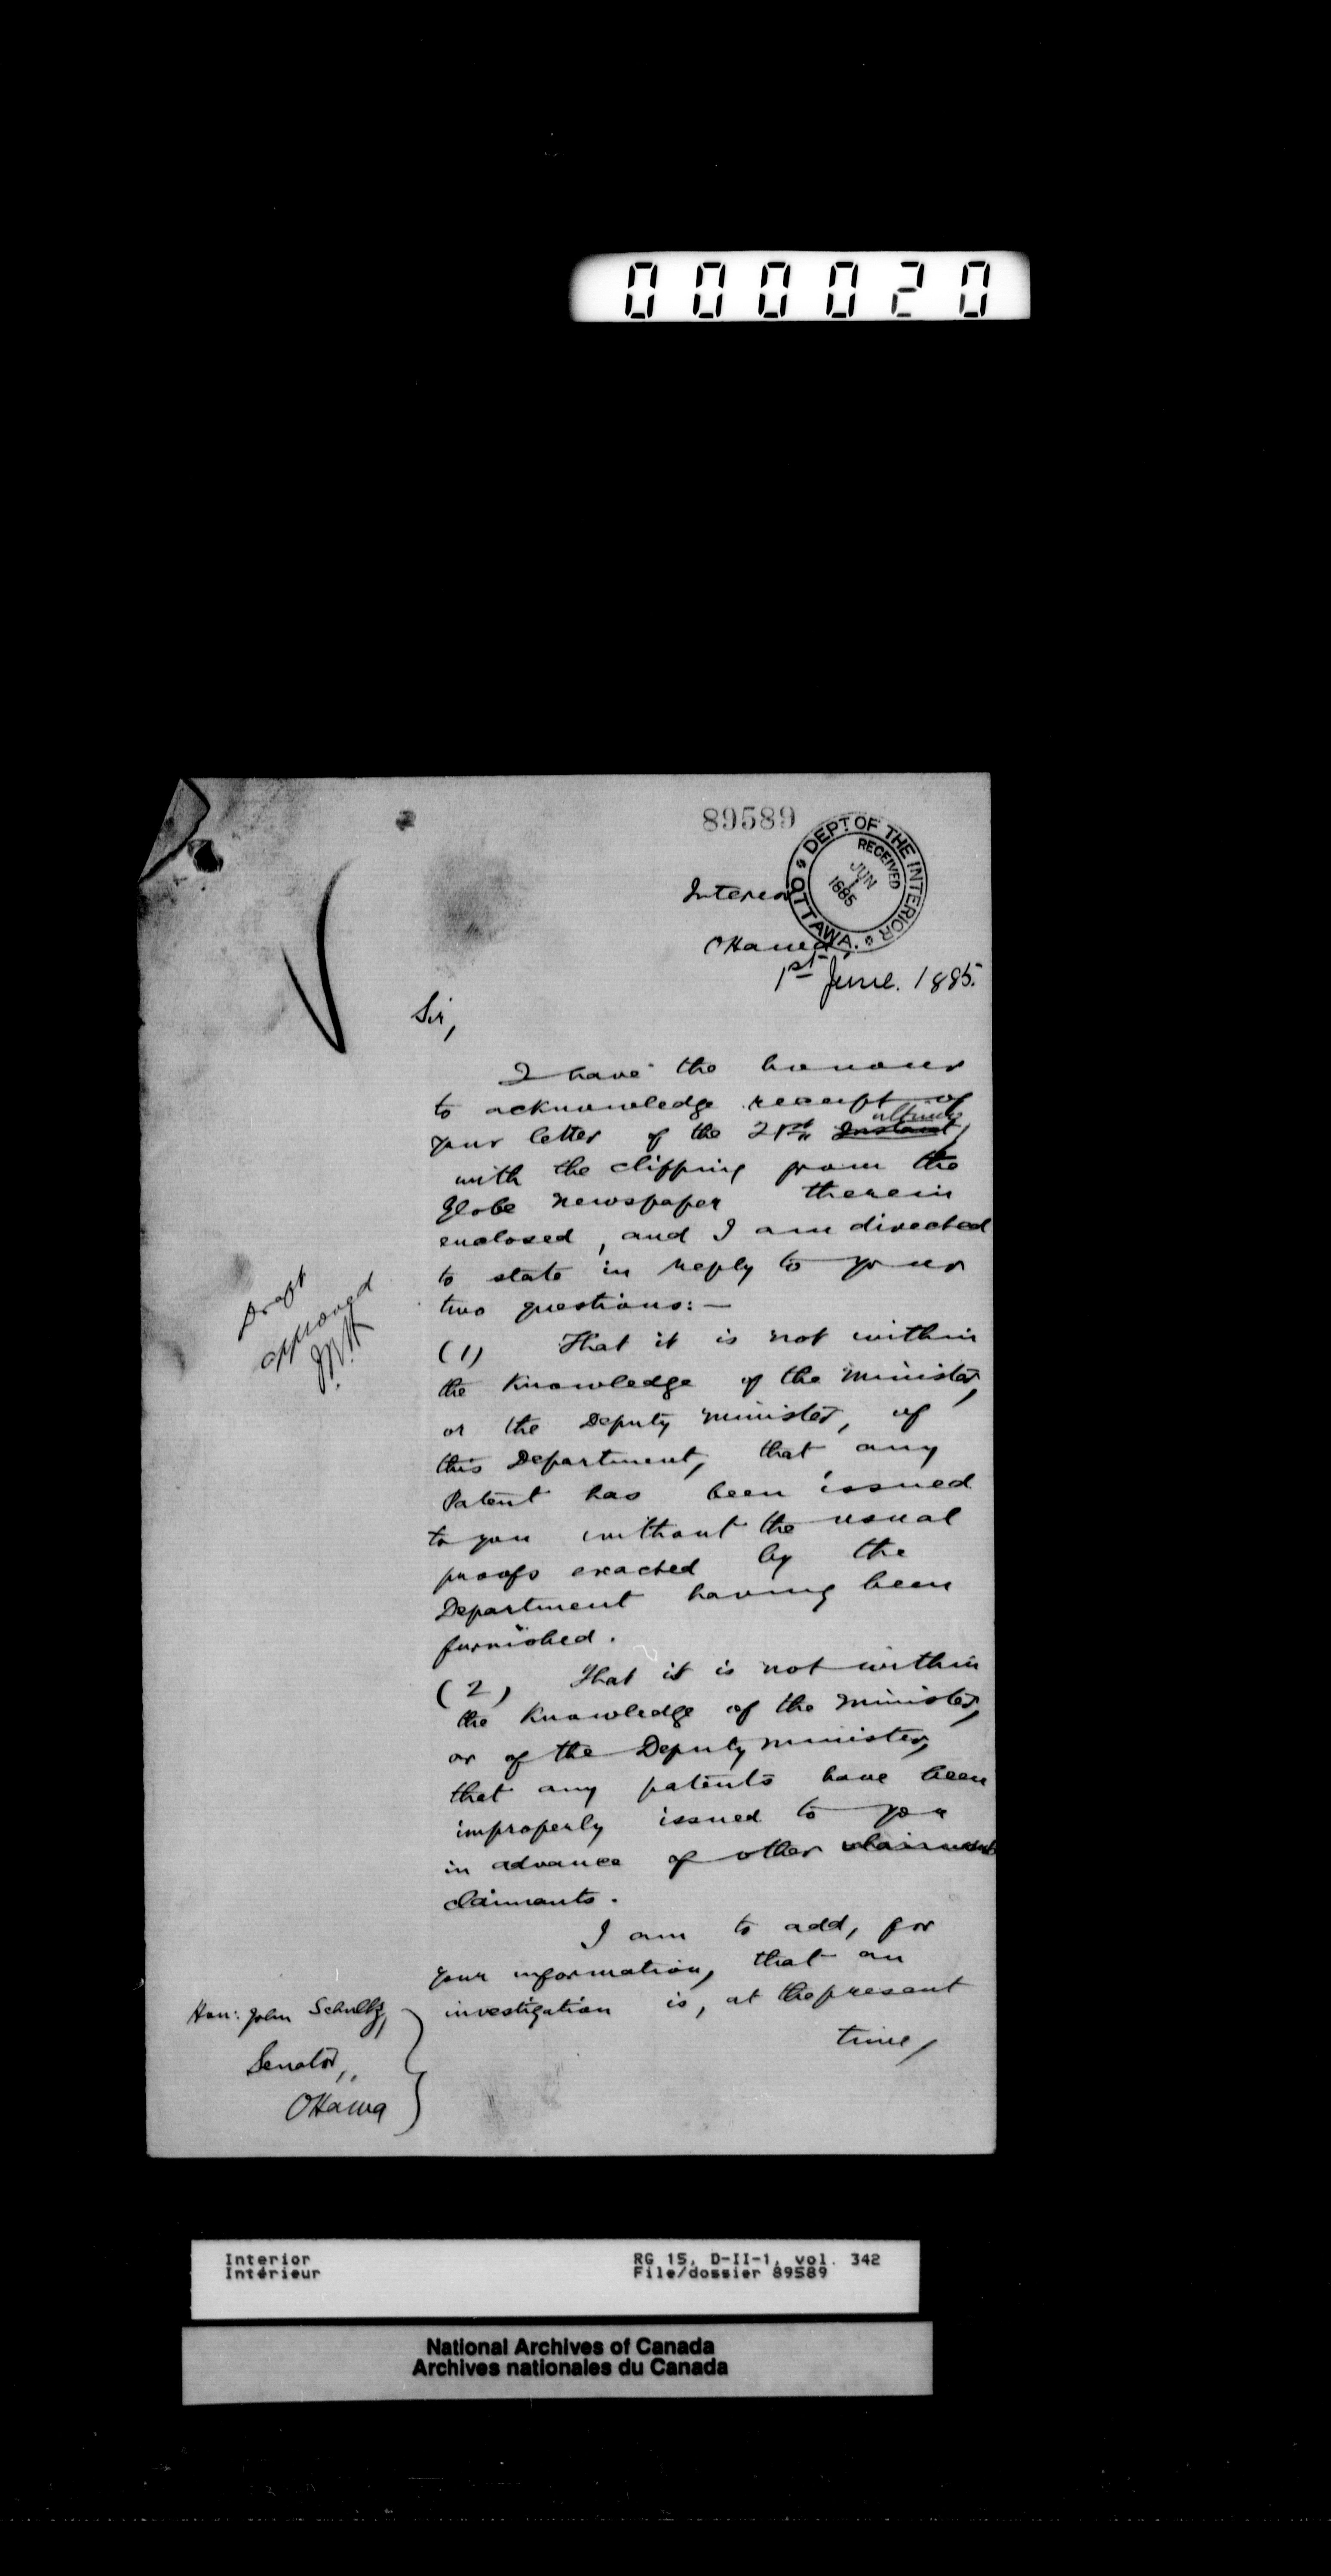 000020
89589
DEPT OF THE INTERIOR
RECEIVED
JUN
1
1885
OTTAWA.
Interior
Ottawa
1st June. 1885.
Sir,
I have the honour
to acknowledge receipt of
your letter of the 21st Instant ultimo,
with the clipping from the
Globe newspaper therein
enclosed, and I am directed
to state in reply to your
two questions:—
(1) That it is not within
the knowledge of the Minister,
or the Deputy Minister, of
this Department, that any
Patent has been issued
to you without the usual
proofs exacted by the
Department having been
furnished.
(2) That it is not within
the knowledge of the Minister,
or of the Deputy Minister,
that any patents have been
improperly issued to you
in advance of other claimants
claimants.
I am to add, for
your information, that an
investigation is, at the present
time,
Draft
approved
Hon: John Schultz,
Senator,
Ottawa
Interior
Intérieur
RG 15, D-II-1, vol. 342
File/dossier 89589
National Archives of Canada
Archives nationales du Canada